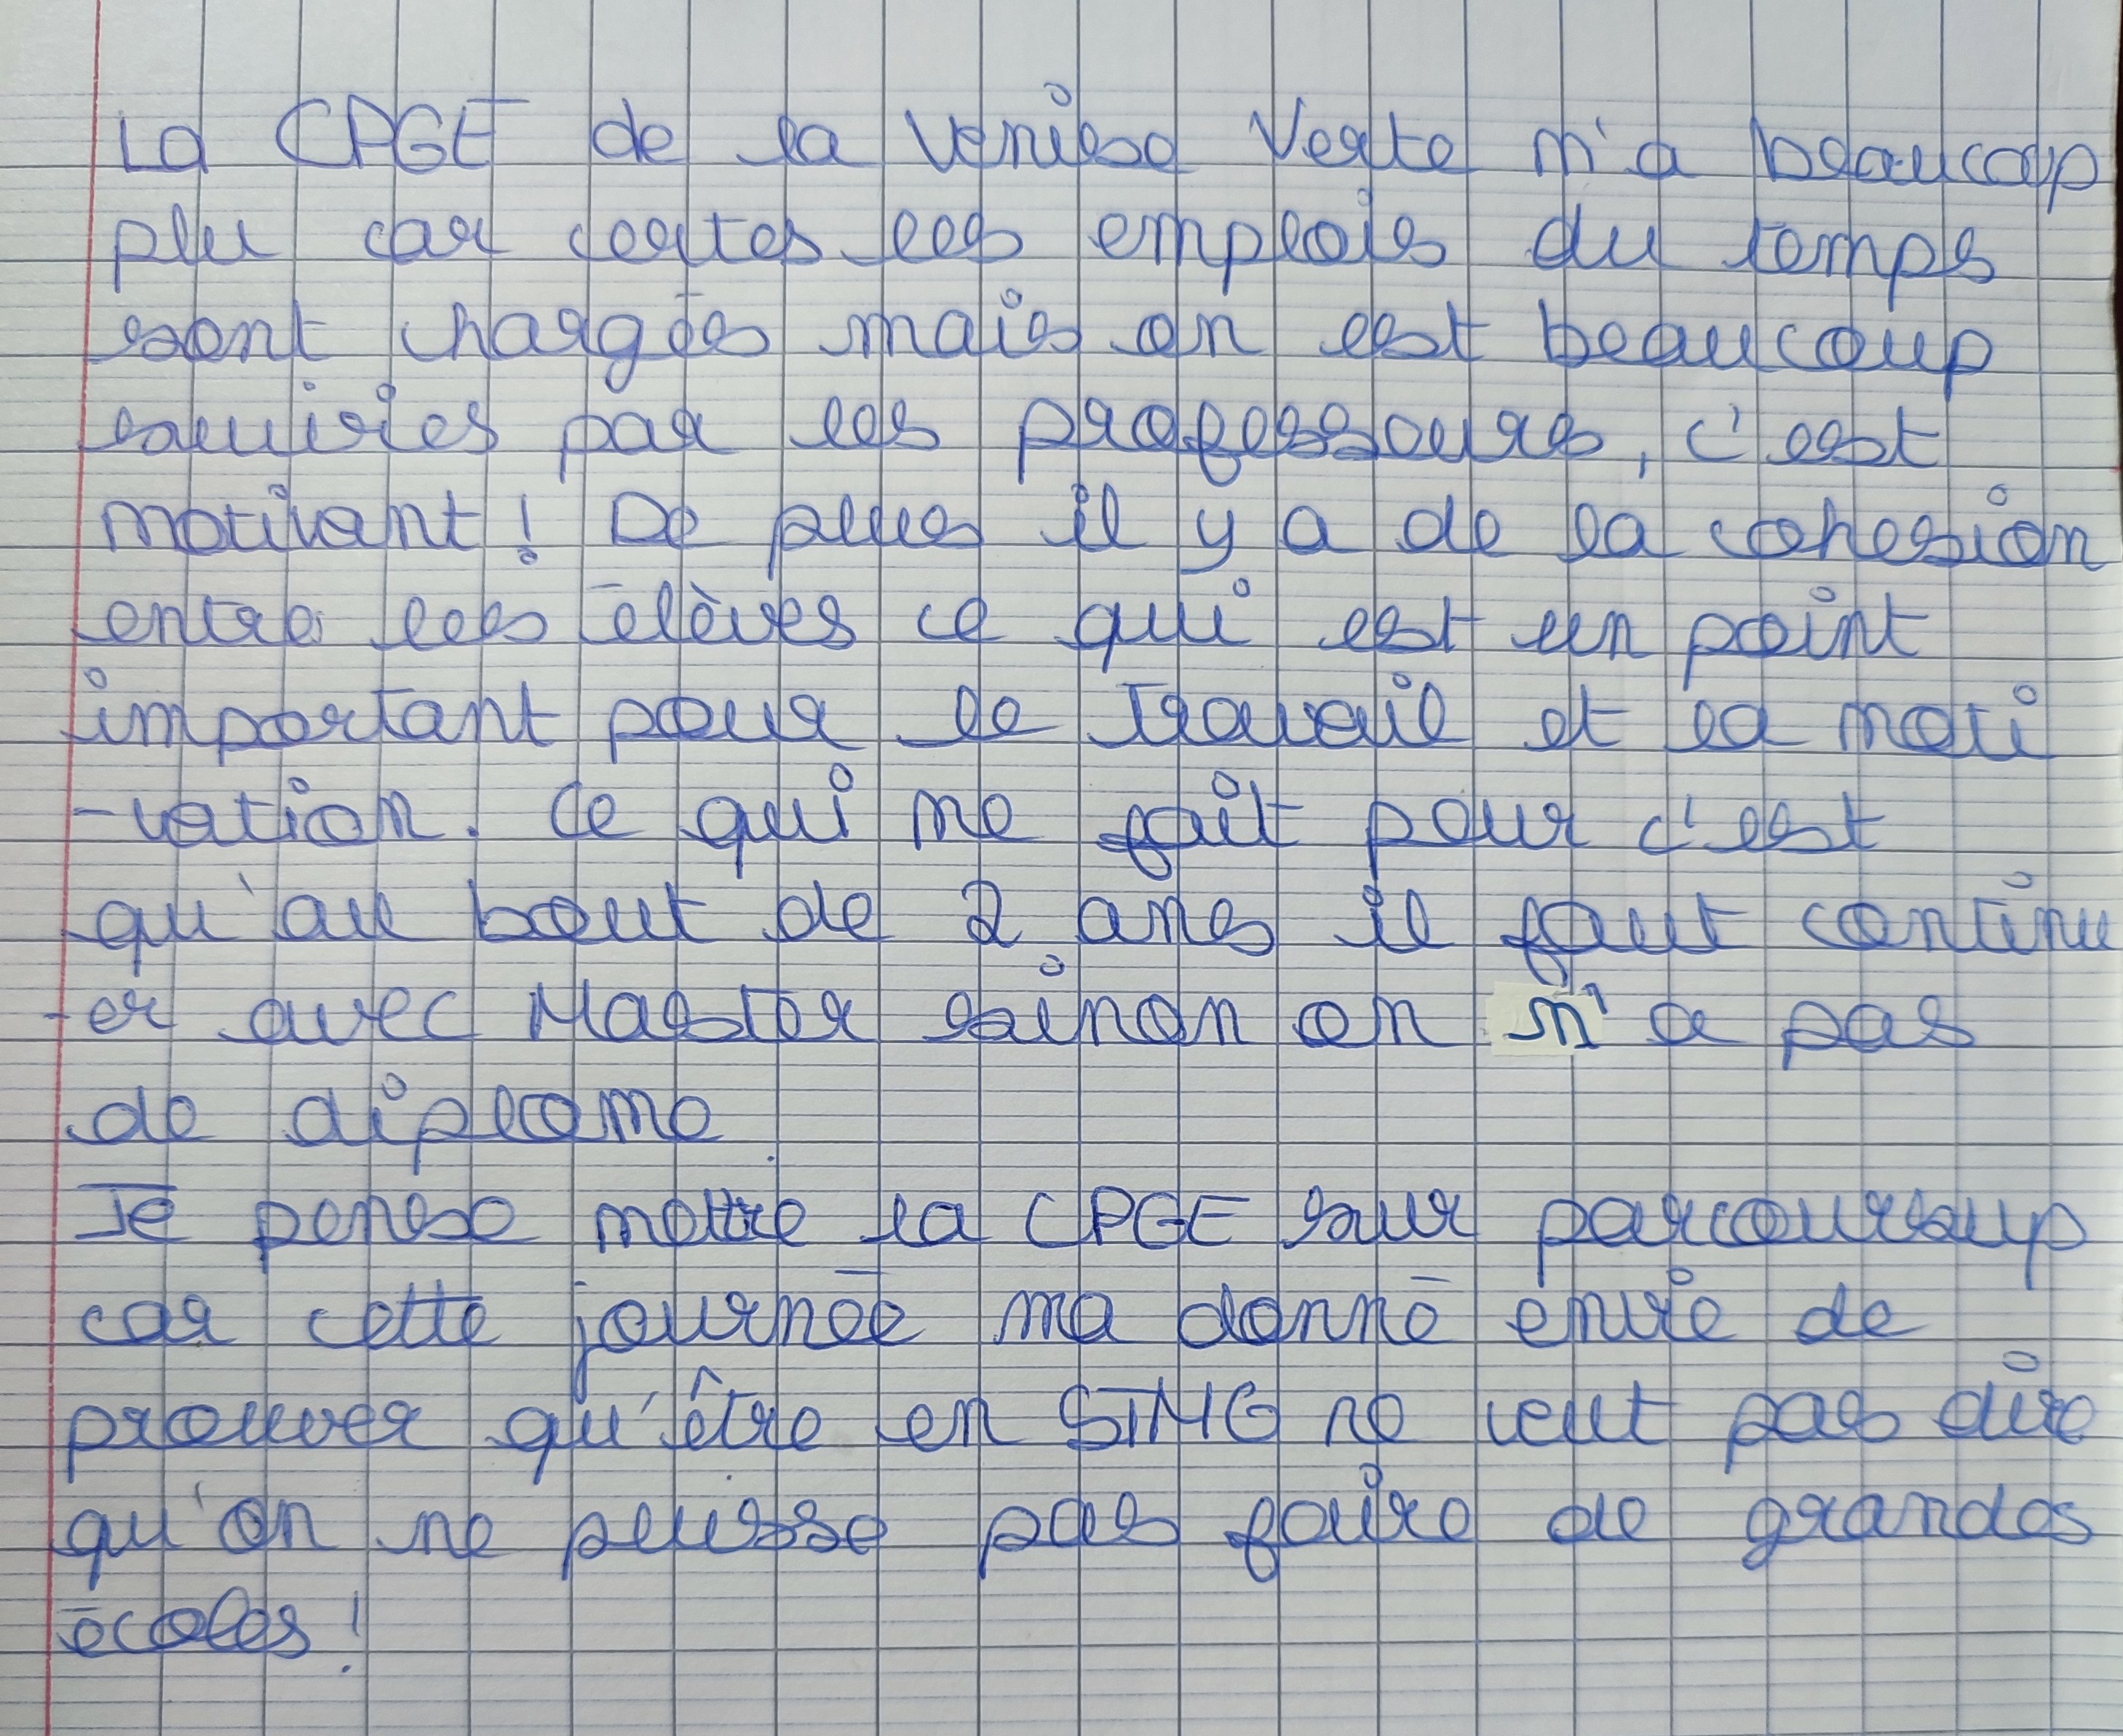 La CPGE de la Venise Verte m'a beaucoup
plu car certes les emplois du temps
sont chargés mais on est beaucoup
suivies par les professeurs, c'est
motivant ! De plus il y a de la cohesion
entre les élèves ce qui est un point
important pour le travail et la moti
-vation. Ce qui me fait pour c'est
qu'au bout de 2 ans il faut continu
-er avec Master sinon on n'a pas
de diplome.
Je pense mettre la CPGE sur parcoursup
car cette journée ma donné envie de
prouver qu'être en STMG ne veut pas dire
qu'on ne puisse pas faire de grandes
écoles !